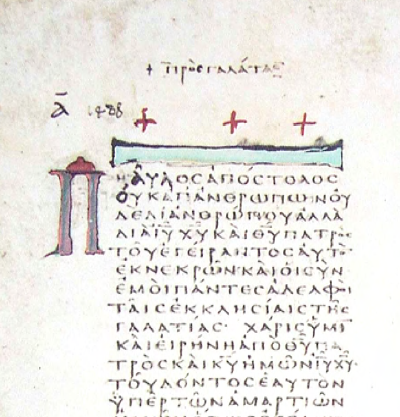 + ΠΡΟΣ ΓΑΛΑΤΑΣ
Α̅
ΠΑΥΛΟΣ ΑΠΟΣΤΟΛΟΣ
ΟΥΚ ΑΠ ΑΝΘΡΩΠΩΝ ΟΥ
ΔΕ ΔΙ ΑΝΘΡΩΠΟΥ ΑΛΛΑ
ΔΙΑ ΙΥ ΧΥ ΚΑΙ ΘΥ ΠΑΤΡΟΣ
ΤΟΥ ΕΓΕΙΡΑΝΤΟΣ ΑΥΤΟ̅
ΕΚ ΝΕΚΡΩΝ ΚΑΙ ΟΙ ΣΥΝ
ΕΜΟΙ ΠΑΝΤΕΣ ΑΔΕΛΦΟΙ
ΤΑΙΣ ΕΚΚΛΗΣΙΑΙΣ ΤΗΣ
ΓΑΛΑΤΙΑΣ· ΧΑΡΙΣ ΥΜΙ̅
ΚΑΙ ΕΙΡΗΝΗ ΑΠΟ ΘΥ ΠΑ
ΤΡΟΣ ΚΑΙ ΚΥ ΗΜΩΝ ΙΥ ΧΥ·
ΤΟΥ ΔΟΝΤΟΣ ΕΑΥΤΟΝ
ΥΠΕΡ ΤΩΝ ΑΜΑΡΤΙΩΝ